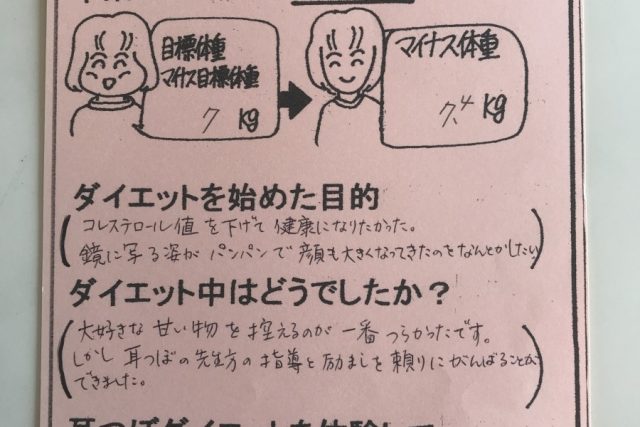 目標体重
マイナス目標体重
7 kg
マイナス体重
7.4 kg
ダイエットを始めた目的
コレステロール値を下げて健康になりたかった。
鏡に写る姿がパンパンで顔も大きくなってきたのをなんとかしたい
ダイエット中はどうでしたか？
大好きな甘い物を控えるのが一番つらかったです。
しかし耳つぼの先生方の指導と励ましを頼りにがんばることが
できました。
耳つぼダイエットを体験して